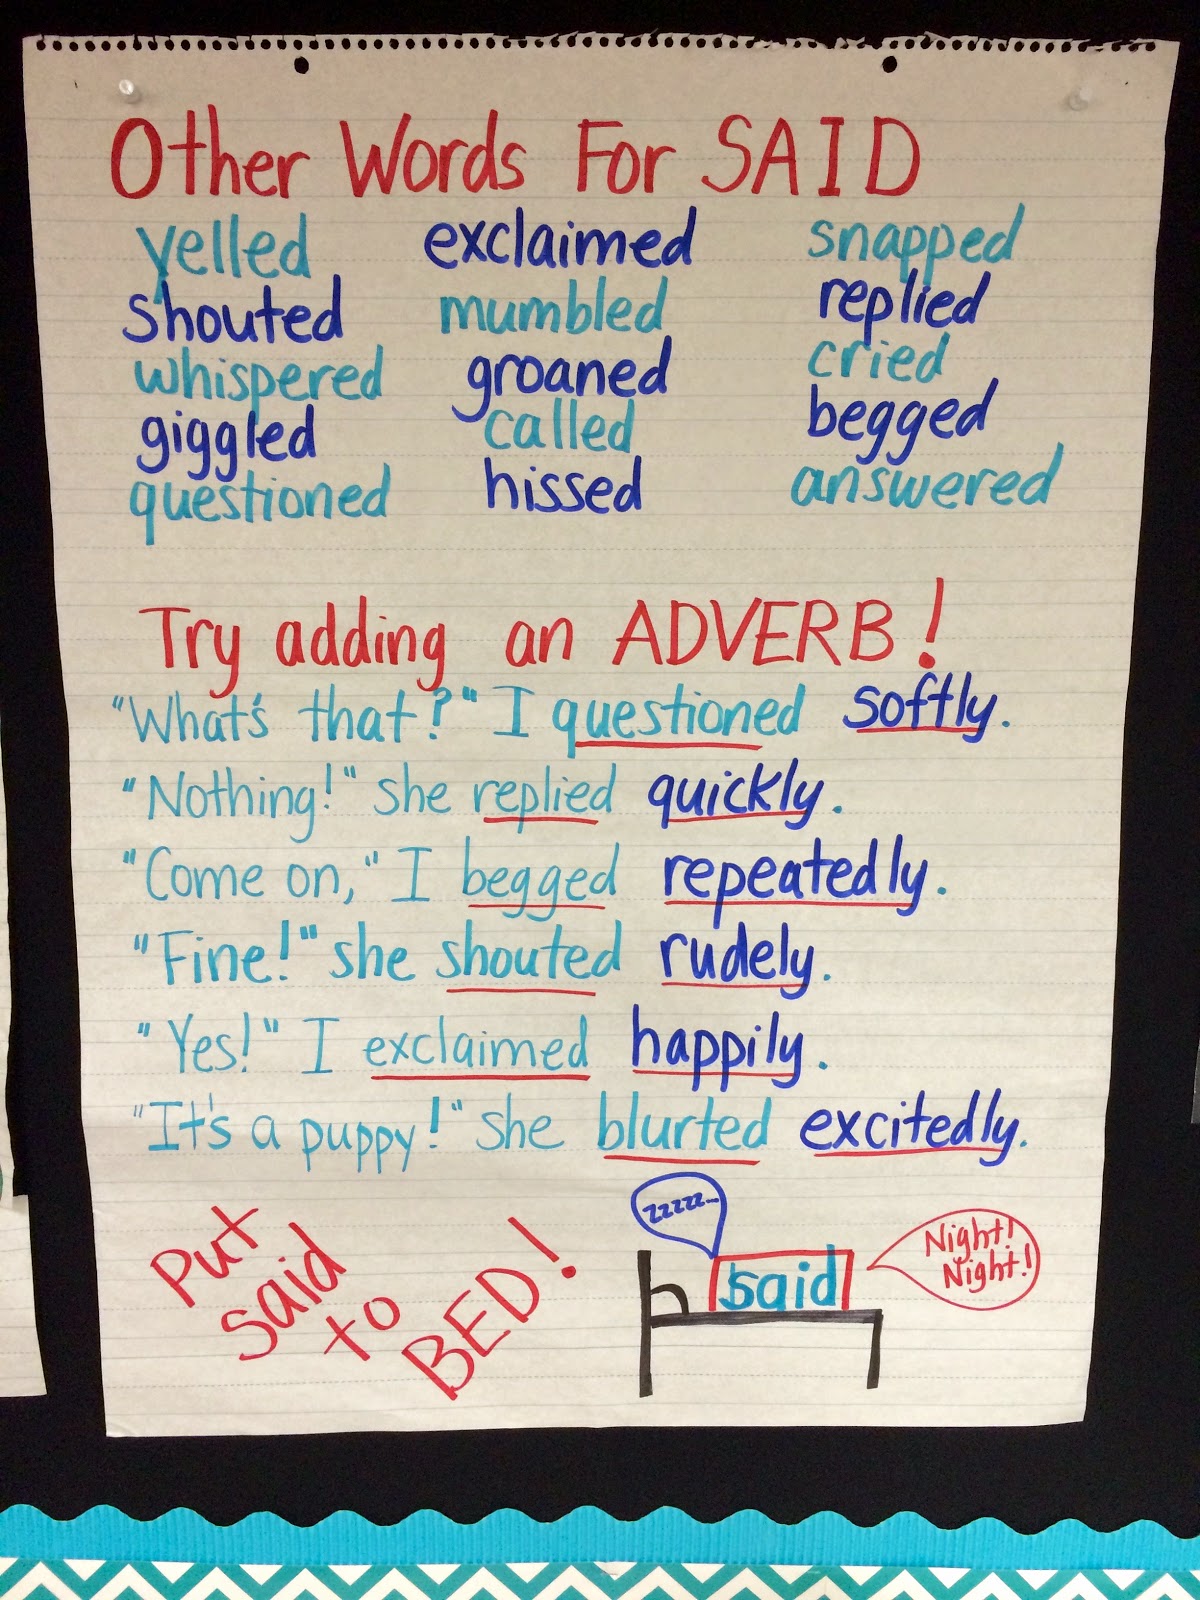 Other Words For SAID
yelled exclaimed snapped
shouted mumbled replied
whispered groaned cried
giggled called begged
questioned hissed answered
Try adding an ADVERB!
"What's that?" I questioned softly.
"Nothing!" she replied quickly.
"Come on," I begged repeatedly.
"Fine!" she shouted rudely.
"Yes!" I exclaimed happily.
"It's a puppy!" she blurted excitedly.
Put
said
to
BED!
zzzzz...
said
Night!
Night!